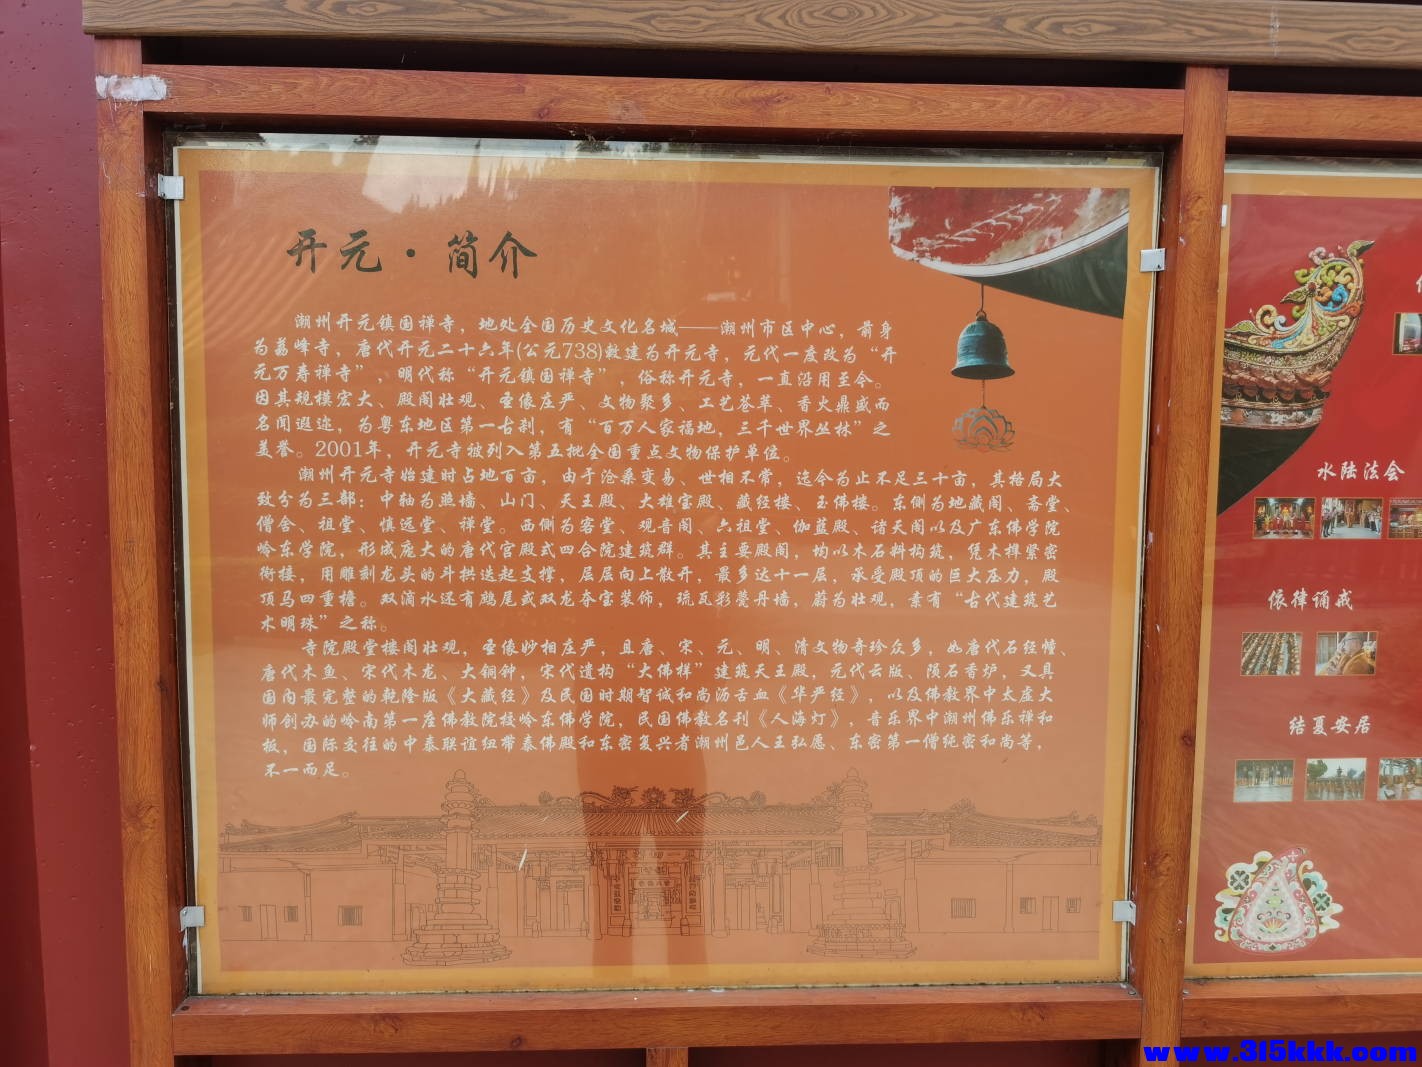 开元·简介
潮州开元镇国禅寺，地处全国历史文化名城——潮州市区中心，前身
为荔峰寺，唐代开元二十六年(公元738)敕建为开元寺，元代一度改为“开
元万寿禅寺”，明代称“开元镇国禅寺”，俗称开元寺，一直沿用至今。
因其规模宏大、殿阁壮观、圣像庄严、文物聚多、工艺荟萃、香火鼎盛而
名闻遐迩，为粤东地区第一古刹，有“百万人家福地，三千世界丛林”之
美誉。2001年，开元寺被列入第五批全国重点文物保护单位。
潮州开元寺始建时占地百亩，由于沧桑变易、世相不常，迄今为止不足三十亩，其格局大
致分为三部：中轴为照墙、山门、天王殿、大雄宝殿、藏经楼、玉佛楼。东侧为地藏阁、斋堂、
僧舍、祖堂、慎远堂、禅堂。西侧为客堂、观音阁、六祖堂、伽蓝殿、诸天阁以及广东佛学院
岭东学院，形成庞大的唐代宫殿式四合院建筑群。其主要殿阁，均以木石料构筑，凭木榫紧密
衔接，用雕刻龙头的斗拱迭起支撑，层层向上散开，最多达十一层，承受殿顶的巨大压力，殿
顶马四重檐。双滴水还有鸱尾或双龙夺宝装饰，琉瓦彩甍丹墙，蔚为壮观，素有“古代建筑艺
术明珠”之称。
寺院殿堂楼阁壮观，圣像妙相庄严，且唐、宋、元、明、清文物奇珍众多，如唐代石经幢、
唐代木鱼、宋代木龙、大铜钟，宋代遗构“大佛样”建筑天王殿，元代云版、陨石香炉，又具
国内最完整的乾隆版《大藏经》及民国时期智诚和尚沥舌血《华严经》，以及佛教界中太虚大
师创办的岭南第一座佛教院校岭东佛学院，民国佛教名刊《人海灯》，音乐界中潮州佛乐禅和
板，国际交往的中泰联谊纽带泰佛殿和东密复兴者潮州邑人王弘愿、东密第一僧纯密和尚等，
不一而足。
水陆法会
依律诵戒
结夏安居
www.315kkk.com